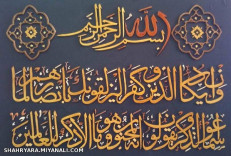 بسم الله الرحمن الرحيم
وإن يكاد الذين كفروا ليزلقونك بأبصارهم لما
سمعوا الذكر ويقولون إنه لمجنون وما هو إلا ذكر للعالمين
SHAHRYARA.MIYANALI.COM